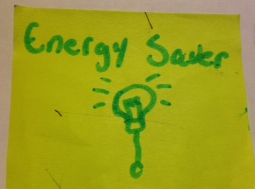 Energy Saver